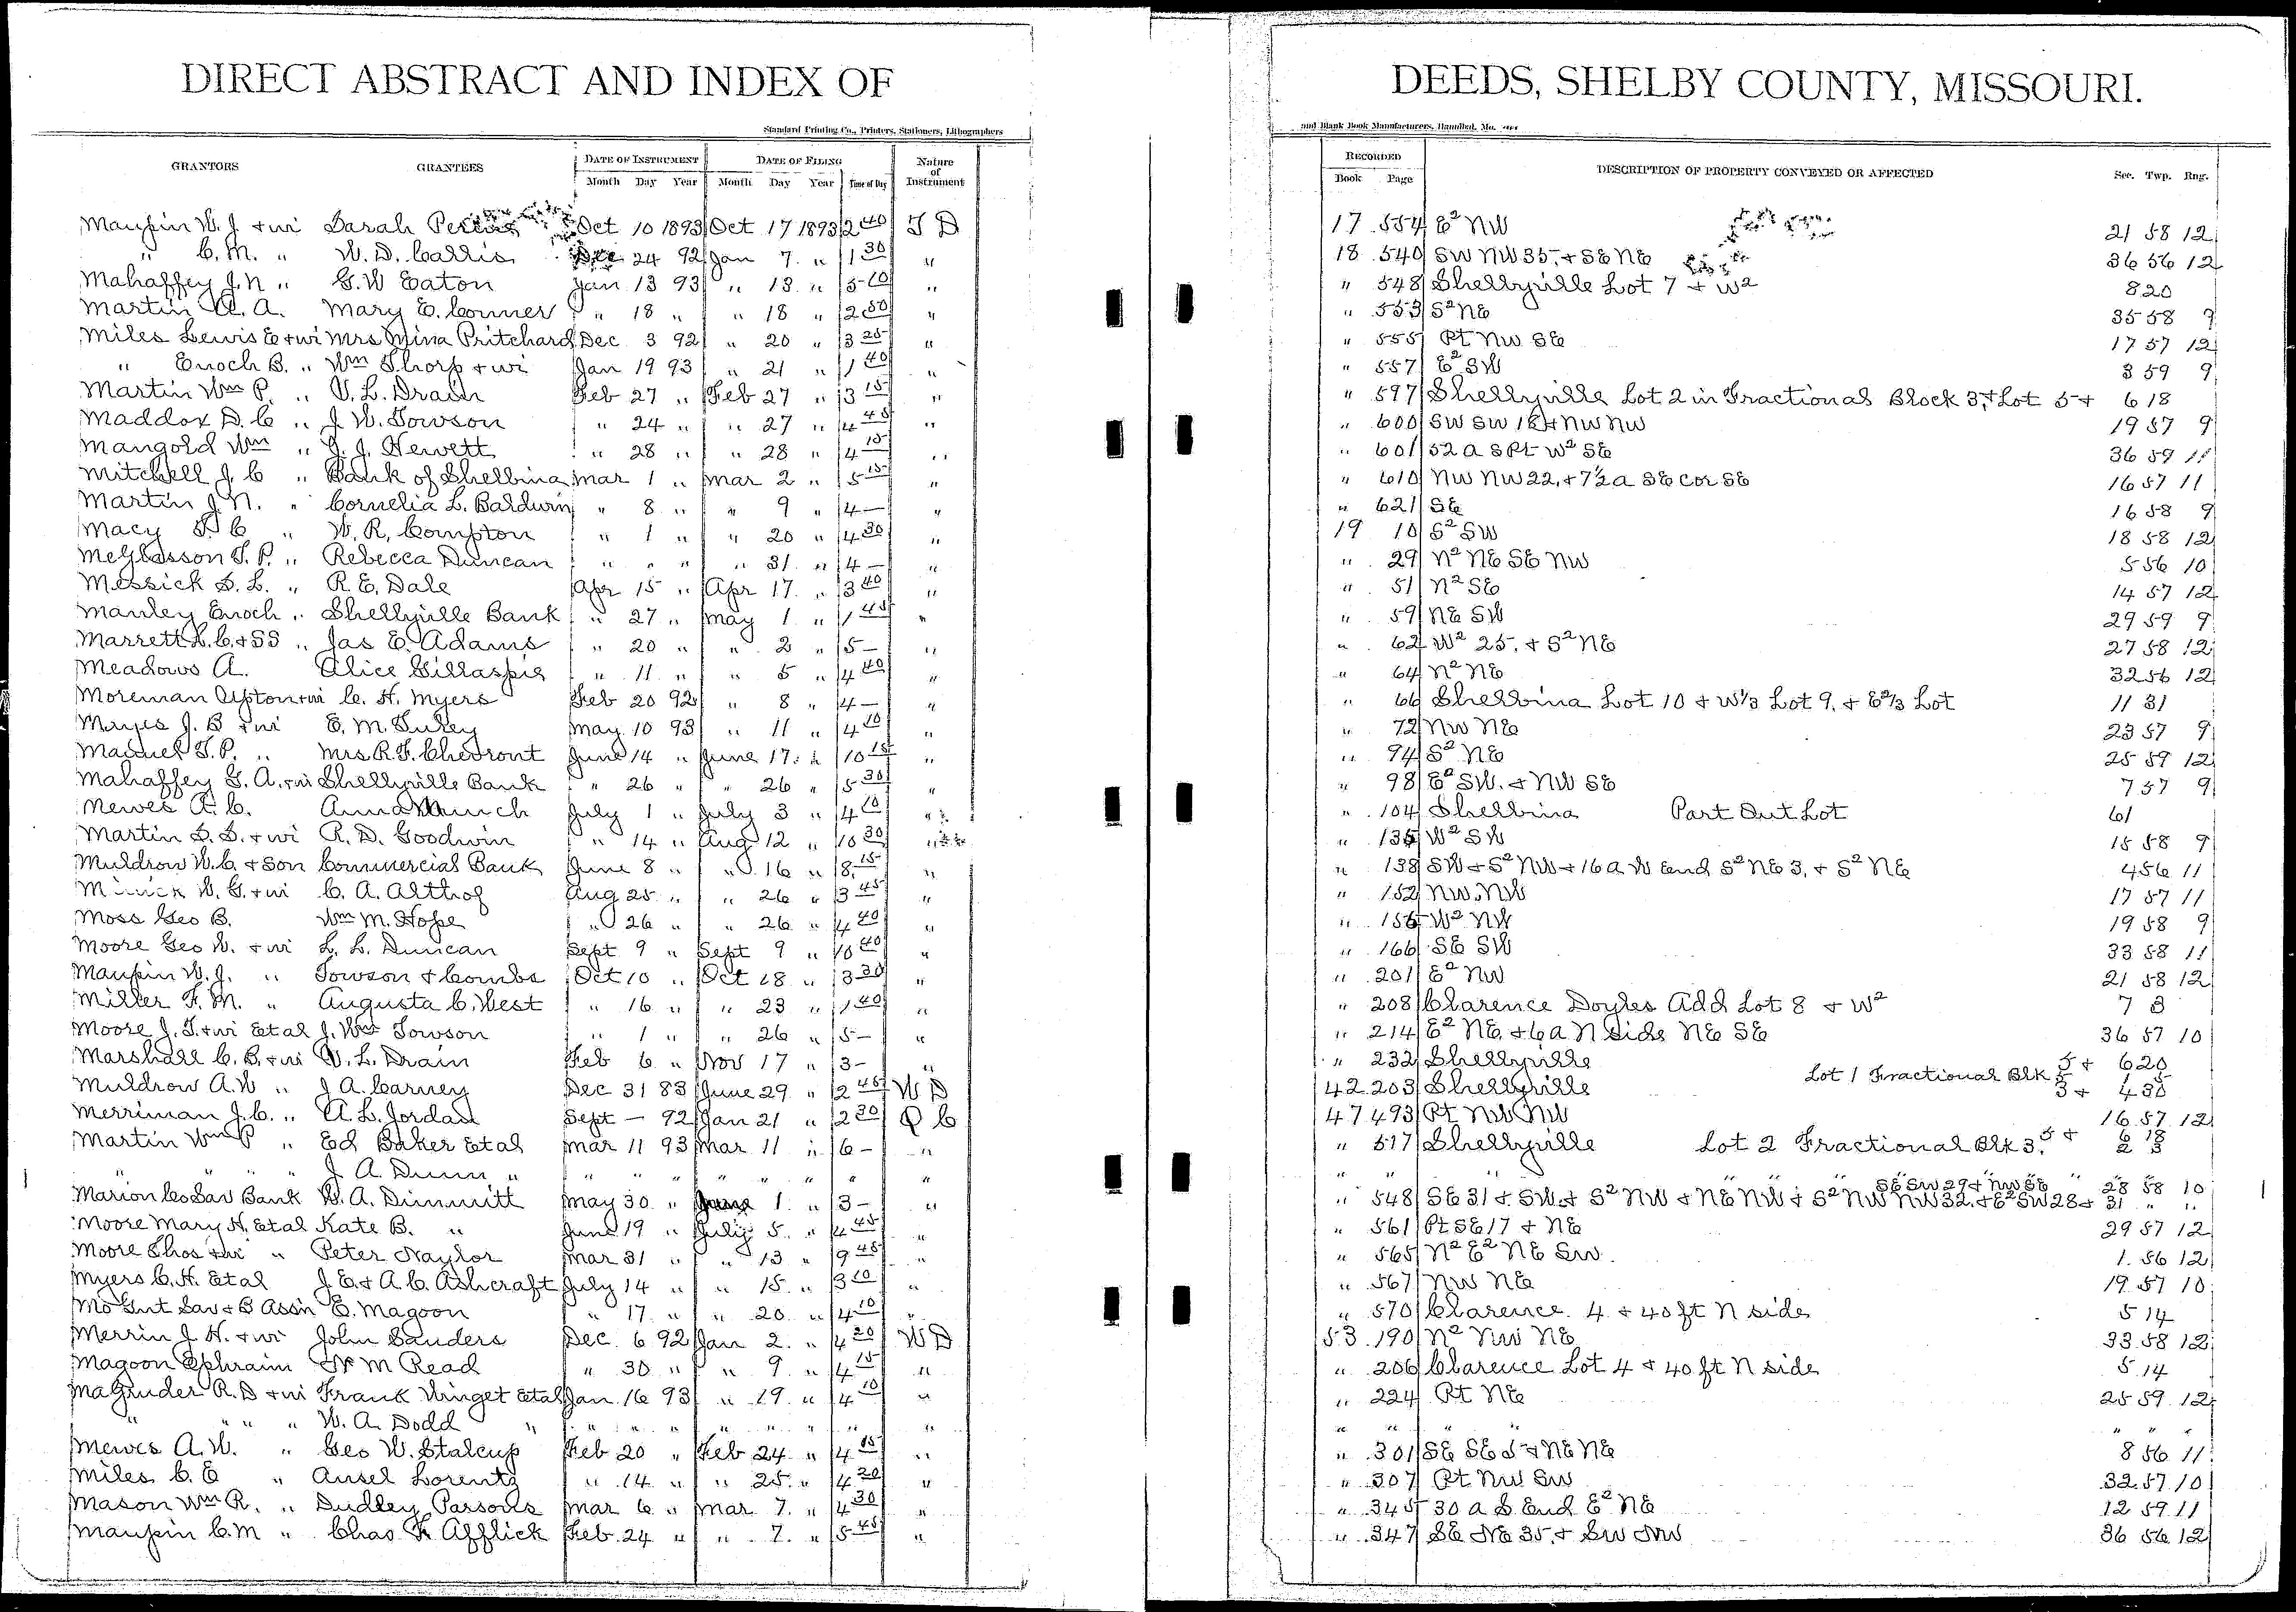 DIRECT ABSTRACT AND INDEX OF DEEDS, SHELBY COUNTY, MISSOURI.
Standard Printing Co., Printers, Stationers, Lithographers and Blank Book Manufacturers, Hannibal, Mo.
GRANTORS GRANTEES DATE OF INSTRUMENT DATE OF FILING Nature of Instrument RECORDED DESCRIPTION OF PROPERTY CONVEYED OR AFFECTED Sec. Twp. Rng.
Month Day Year Month Day Year Time of Day Book Page
Maupin W. J. + wi Sarah Oct 10 1893 Oct 17 1893 2 40 T D 17 554 E² NW 21 58 12
" C. M. " W. D. Callis Dec 24 92 Jan 7 " 1 30 " 18 540 SW NW 35, + SE NE 36 56 12
Mahaffey J. N " G. W Eaton Jan 13 93 " 13 " 5 10 " " 548 Shelbyville Lot 7 + W² 8 20
Martin A. A. Mary E. Conner " 18 " " 18 " 2 50 " " 553 S² NE 35 58 9
Miles Lewis E + wi Mrs Mina Pritchard Dec 3 92 " 20 " 3 25 " " 555 Pt NW SE 17 57 12
" Enoch B. " Wm Thorp + wi Jan 19 93 " 21 " 1 40 " " 557 E² SW 3 59 9
Martin Wm P. " V. L. Drain Feb 27 " Feb 27 " 3 15 " " 597 Shelbyville Lot 2 in Fractional Block 3, + Lot 5 + 6 18
Maddox D. C " J. W. Towson " 24 " " 27 " 4 45 " " 600 SW SW 18 + NW NW 19 57 9
Mangold Wm " J. J. Hewett " 28 " " 28 " 4 15 " " 601 52 a S Pt W² SE 36 59 11
Mitchell J. C " Bank of Shelbina Mar 1 " Mar 2 " 5 15 " " 610 NW NW 22, + 7½ a SE Cor SE 16 57 11
Martin J. N. " Cornelia L. Baldwin " 8 " " 9 " 4 — " " 621 SE 16 58 9
Macy T. C " W. R. Compton " 1 " " 20 " 4 30 " 19 10 S² SW 18 58 12
McGlasson T. P. " Rebecca Duncan " " " " 31 " 4 — " " 29 N² NE SE NW 5 56 10
Messick S. L. " R. E. Dale Apr 15 " Apr 17 " 3 40 " " 51 N² SE 14 57 12
Manley Enoch " Shelbyville Bank " 27 " May 1 " 1 45 " " 59 NE SW 29 59 9
Marrett L. C. + SS " Jas E. Adams " 20 " " 2 " 5 — " " 62 W² 25, + S² NE 27 58 12
Meadows A. Alice Gillaspie " 11 " " 5 " 4 40 " " 64 N² NE 32 56 12
Moreman Upton + wi C. H. Myers Feb 20 92 " 8 " 4 — " " 66 Shelbina Lot 10 + W⅓ Lot 9, + E⅔ Lot 11 31
Mayes J. B + wi E. M. Turey May 10 93 " 11 " 4 10 " " 72 NW NE 23 57 9
Manuel T. P. " Mrs. R. F. Chevront June 14 " June 17 " 10 15 " " 94 S² NE 25 59 12
Mahaffey G. A. + wi Shelbyville Bank " 26 " " 26 " 5 30 " " 98 E² SW, + NW SE 7 57 9
Mewes A. C. Anna Munch July 1 " July 3 " 4 10 " " 104 Shelbina Part Out Lot 61
Martin S. S. + wi R. D. Goodwin " 14 " Aug 12 " 10 30 " " 135 W² SW 15 58 9
Muldrow W. C. + Son Commercial Bank June 8 " " 16 " 8 15 " " 138 SW + S² NW + 16 a W End S² NE 3, + S² NE 4 56 11
W. G. + wi C. A. Althof Aug 25 " " 26 " 3 45 " " 152 NW NW 17 57 11
Moss Geo B. Wm M. Hope " 26 " " 26 " 4 40 " " 155 W² NW 19 58 9
Moore Geo W. + wi L. L. Duncan Sept 9 " Sept 9 " 10 40 " " 166 SE SW 33 58 11
Maupin W. J. " Towson + Combs Oct 10 " Oct 18 " 3 30 " " 201 E² NW 21 58 12
Miller F. M. " Augusta C. West " 16 " " 23 " 1 40 " " 208 Clarence Doyles Add Lot 8 + W² 7 3
Moore J. T. + wi Etal J. Wm Towson " 1 " " 26 " 5 — " " 214 E² NE, + 6 a N side NE SE 36 57 10
Marshall C. B. + wi V. L. Drain Feb 6 " Nov 17 " 3 — " " 232 Shelbyville 5 + 6 20
Muldrow A. W " J A. Carney Dec 31 83 June 29 " 2 45 W D 42 203 Shelbyville Lot 1 Fractional Blk 5 1 5 3 + 4 30
Merriman J. C. " A. L. Jordan Sept — 92 Jan 21 " 2 30 Q C 47 493 Pt NW NW 16 57 12
Martin Wm P " Ed Baker Etal Mar 11 93 Mar 11 " 6 — " " 517 Shelbyville Lot 2 Fractional Blk 3, 5 + 6 18 2 3
" " " " J A. Dunn " " " " " " " " " " "
Marion Co Sav Bank W. A. Dimmitt May 30 " June 1 " 3 — " " 548 SE 31 + SW + S² NW + NE NW + S² NW NW 32, + E² SW 28 + SE SW 29 + NW SE 28 58 10 31 " "
Moore Mary H. Etal Kate B. " June 19 " July 5 " 4 45 " " 561 Pt SE 17 + NE 29 57 12
Moore Thos + wi " Peter Naylor Mar 31 " " 13 " 9 45 " " 565 N² E² NE SW 1 56 12
Myers C. H. Etal J. E. + A. C. Ashcraft July 14 " " 15 " 3 10 " " 567 NW NE 19 57 10
Mo Gut Sav + B Assn E. Magoon " 17 " " 20 " 4 10 " " 570 Clarence 4 + 40 ft N side 5 14
Merrin J. H. + wi John Sanders Dec 6 92 Jan 2 " 4 20 W D 53 190 N² NW NE 33 58 12
Magoon Ephraim N M Read " 30 " " 9 " 4 15 " " 206 Clarence Lot 4 + 40 ft N side 5 14
Magruder R. D + wi Frank Winget Etal Jan 16 93 " 19 " 4 10 " " 224 Pt NE 25 59 12
" " " " W. A. Dodd " " " " " " " " " " " " " "
Mewes A. W. " Geo W. Stalcup Feb 20 " Feb 24 " 4 15 " " 301 SE SE 5 + NE NE 8 56 11
Miles C. E " Ansel Lorentz " 14 " " 25 " 4 20 " " 307 Pt NW SW 32 57 10
Mason Wm R. " Dudley Parsons Mar 6 " Mar 7 " 4 30 " " 345 30 a S. End E² NE 12 59 11
Maupin C. M " Chas F. Afflick Feb 24 " " 7 " 5 45 " " 347 SE NE 35, + SW NW 36 56 12